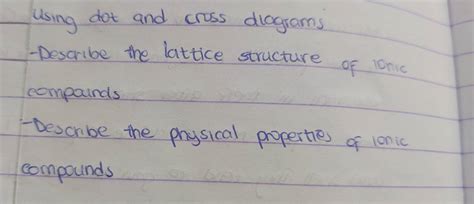 using dot and cross diagrams
-Describe the lattice structure of ionic
compounds
-Describe the physical properties of ionic
compounds